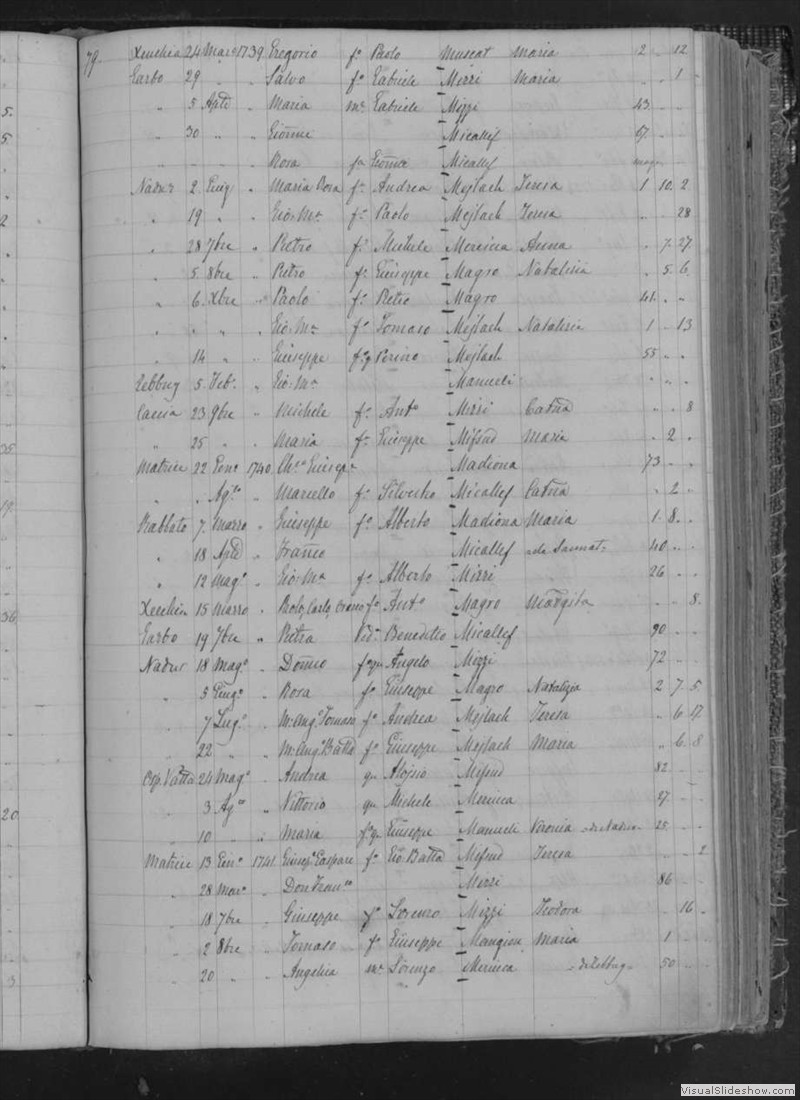 5.
5
2
35
19.
36
20
3
79. Xeuchia 24 Marzo 1739 Gregorio fo Paolo Muscat Maria 2 " 12
Garbo 29 " " Salvo fo Gabriele Mizzi Maria " " 1
" 5 Aple " Maria me Gabriele Mizzi 43 " "
" 30 " " Giome Micallef 67 " "
" " " " Rosa fa Giome Micallef " "
Nadur 2 Giug " Maria Rosa fa Andrea Mejlach Teresa 1 10 2
" 19 " " Gio: Ma fo Paolo Mejlach Teresa " " 28
" 28 7bre " Pietro fo Michele Mercieca Anna " 7 27
" 5 8bre " Pietro fo Giuseppe Magro Natalizia " 5 6
" 6 Xbre " Paolo fo Pietro Magro 41 " "
" " " " Gio: Ma fo Tomaso Mejlach Natalizia 1 " 13
" 14 " " Giuseppe fo q Mejlach 55 " "
Zebbug 5 Feb. " Gio: Ma Manueli " " "
Caccia 23 9bre " Michele fo Anto Mizzi Catna " " 8
" 25 " " Maria fa Giuseppe Mifsud Maria " 2 "
Matrice 22 Genn 1740 Cho Giusepe Madiona 73 " "
" " Agto " Marcello fo Silvestro Micallef Catna " 2 "
Rabbato 7 Marzo " Giuseppe fo Alberto Madiona Maria 1 8 "
" 18 Aple " Franco Micallef de Sannat 40 " "
" 12 Mago " Gio: Ma fo Alberto Mizzi 26 " "
Xeuchia 15 Marzo " Paolo, Carlo, fo Anto Magro Margita " " 8
Garbo 19 7bre " Pietra Vida Benedetto Micallef 90 " "
Nadur 18 Mago " Domco fo qm Angelo Mizzi 72 " "
" 5 Giugo " Rosa fa Giuseppe Magro Natalizia 2 7 5
" 7 Lugo " M. Ango Tomaso fo Andrea Mejlach Teresa " 6 17
" 22 " " M. Ango Batta fo Giuseppe Mejlach Maria " 6 8
Osp. Vatta 24 Mago " Andrea qm Alojsio Mifsud 82 " "
" 3 Ago " Vittorio qm Michele Mercieca 27 " "
" 10 " " Maria fa qm Giuseppe Manueli Veronia de Nadur 25 " "
Matrice 13 Genn 1741 Giuse Gaspare fo Gio Batta Mifsud Teresa " " 2
" 28 Marzo " Don Franco Mizzi 86 " "
" 18 7bre " Giuseppe fo Lorenzo Mizzi Teodora " 16 "
" 2 8bre " Tomaso fo Giuseppe Mangion Maria 1 " "
" 20 " " Angelica me Lorenzo Mercieca de Zebbug 50 " "
VisualSlideshow.com